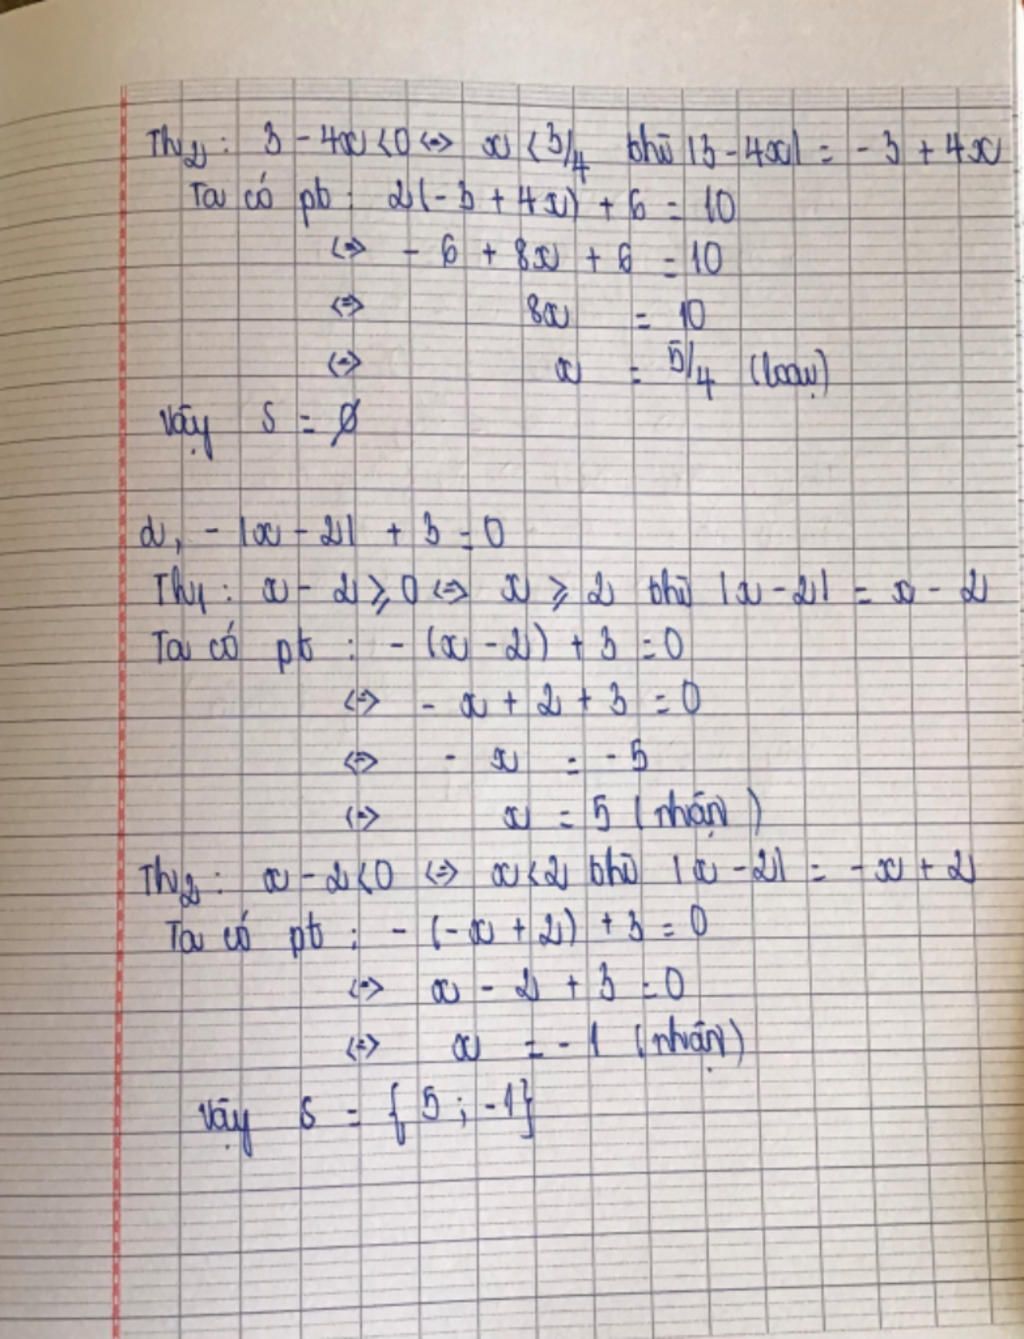 Th2 : 3 - 4x < 0 <=> x < 3/4 thì |3 - 4x| = - 3 + 4x
Ta có pt : 2(- 3 + 4x) + 6 = 10
<=> - 6 + 8x + 6 = 10
<=> 8x = 10
<=> x = 5/4 (loại)
Vậy S = ∅
d, - |x - 2| + 3 = 0
Th1 : x - 2 ⩾ 0 <=> x ⩾ 2 thì |x - 2| = x - 2
Ta có pt : - (x - 2) + 3 = 0
<=> - x + 2 + 3 = 0
<=> - x = - 5
<=> x = 5 (nhận)
Th2 : x - 2 < 0 <=> x < 2 thì |x - 2| = - x + 2
Ta có pt : - (- x + 2) + 3 = 0
<=> x - 2 + 3 = 0
<=> x = - 1 (nhận)
Vậy S = { 5 ; -1}